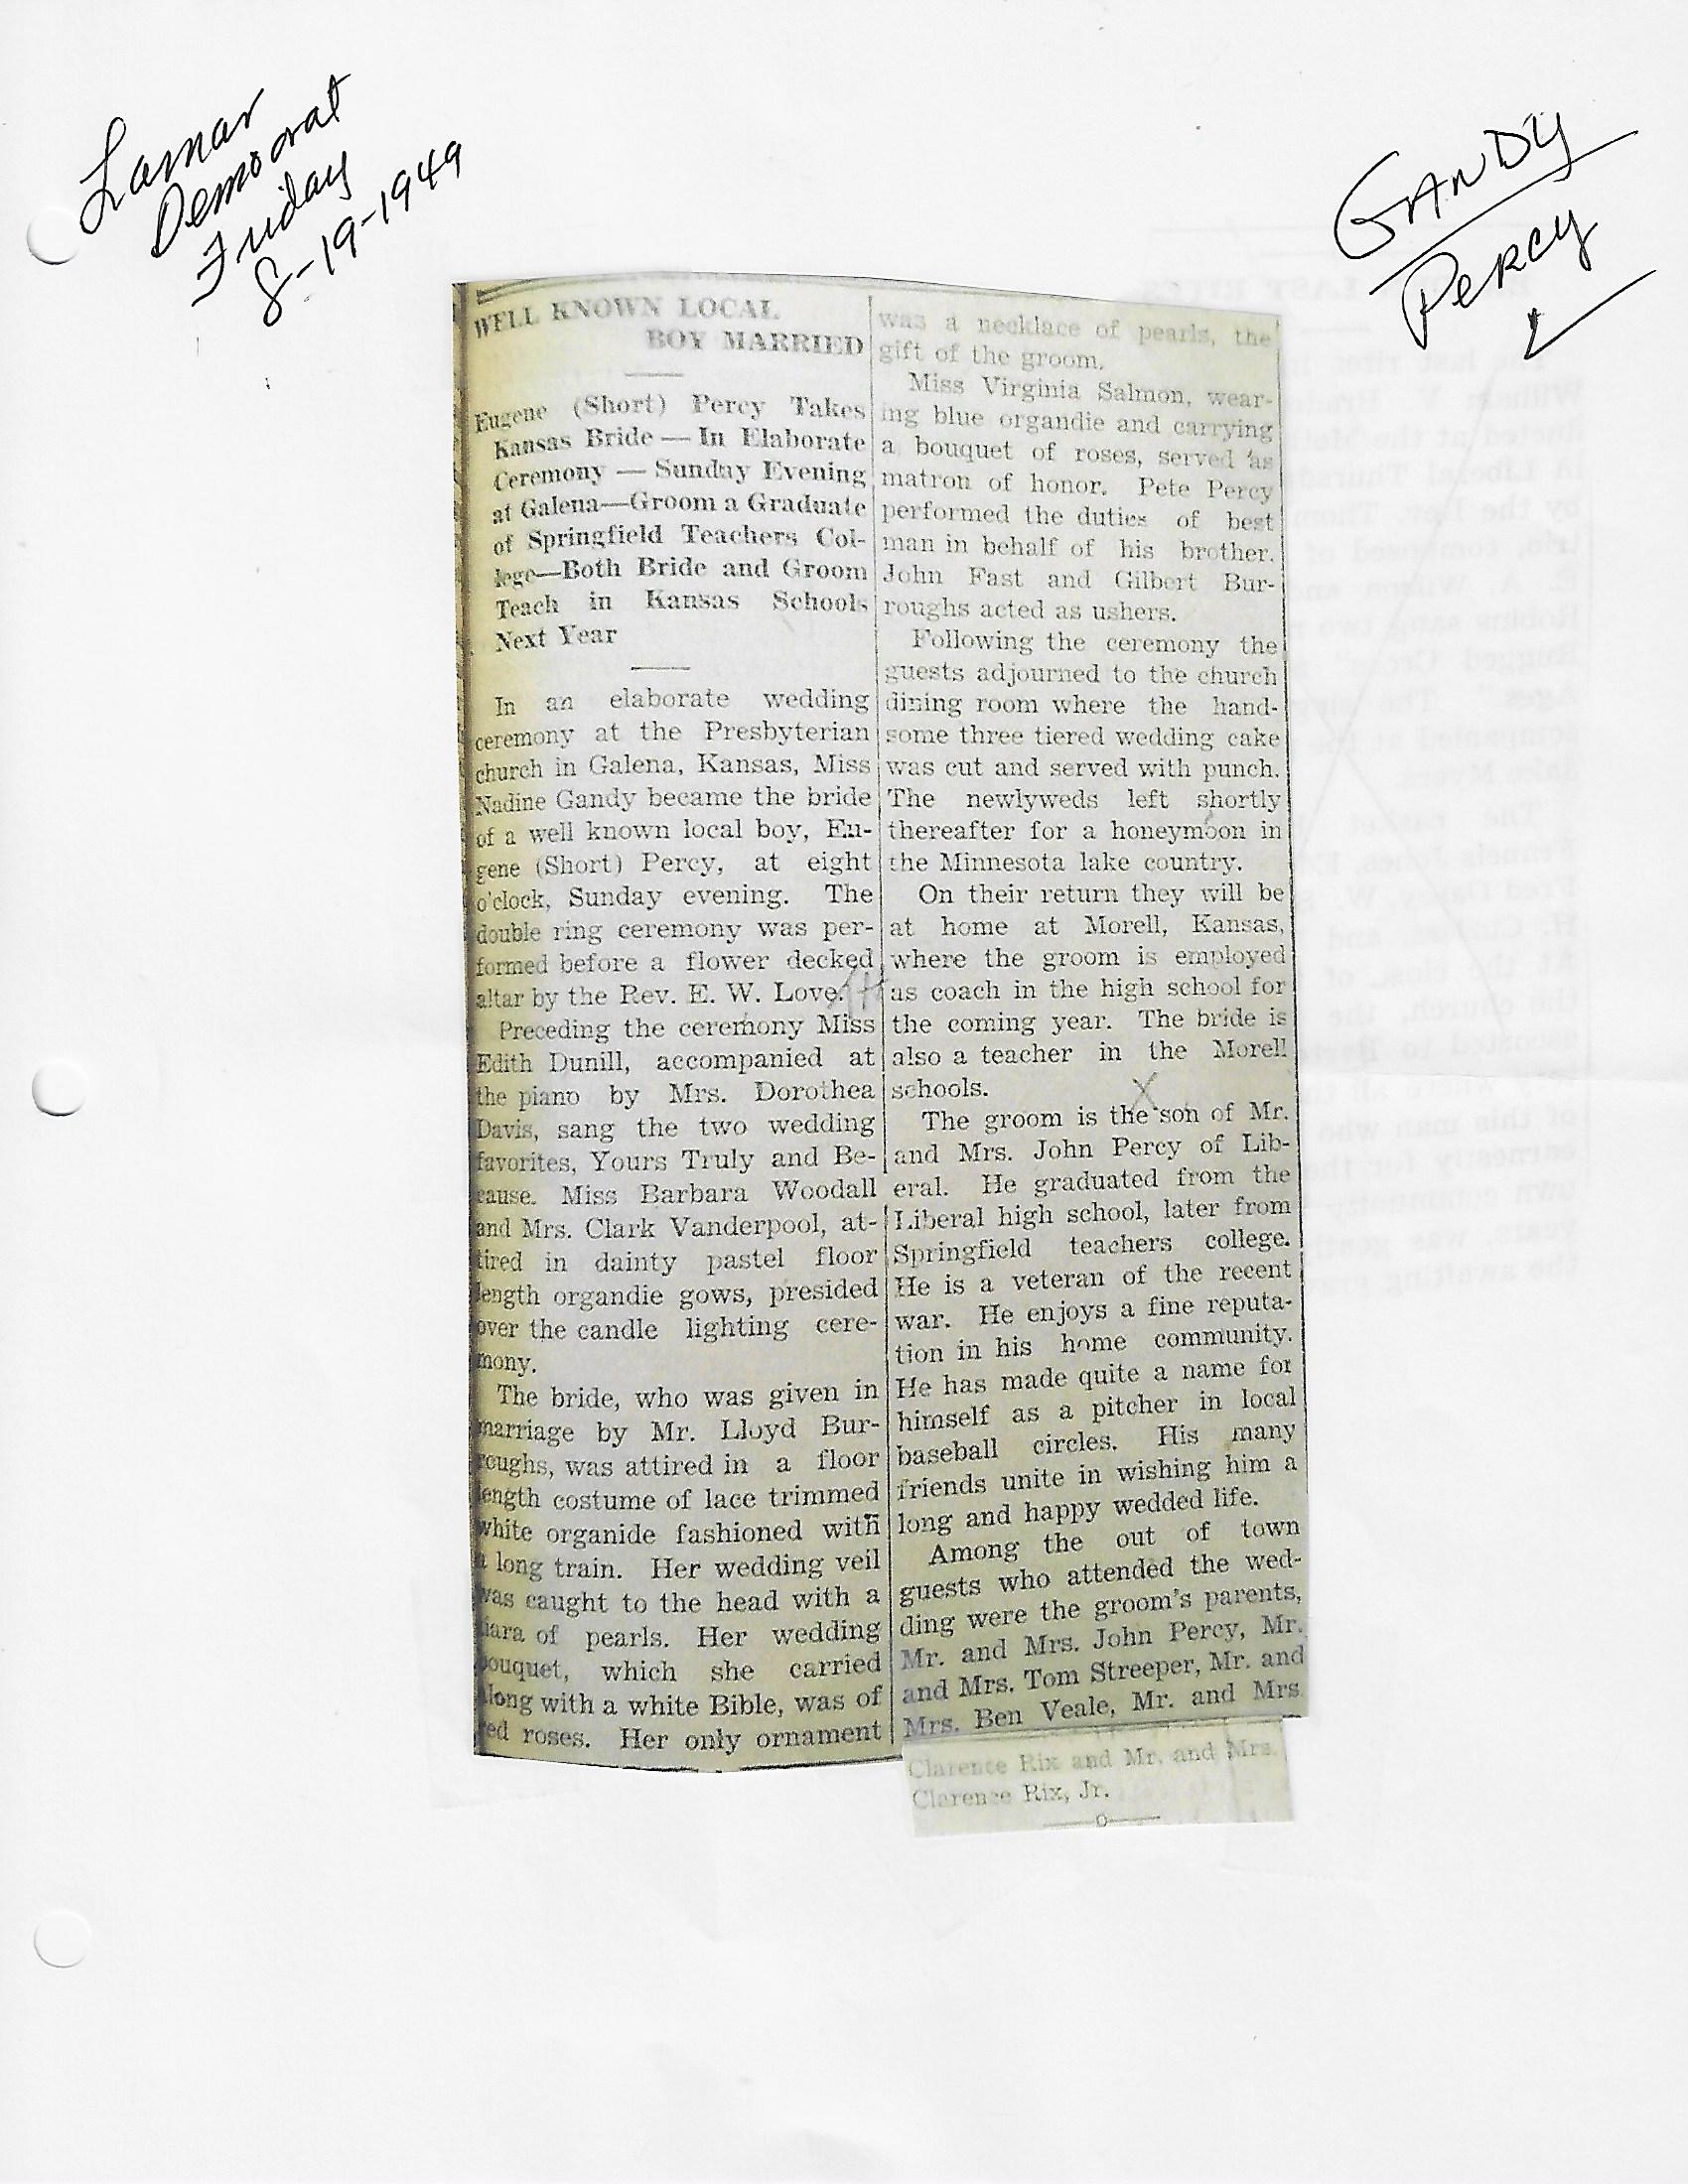 Lamar
Democrat
Friday
8-19-1949
GANDY
Percy
WELL KNOWN LOCAL
BOY MARRIED
Eugene (Short) Percy Takes
Kansas Bride — In Elaborate
Ceremony — Sunday Evening
at Galena—Groom a Graduate
of Springfield Teachers Col-
lege—Both Bride and Groom
Teach in Kansas Schools
Next Year
In an elaborate wedding
ceremony at the Presbyterian
church in Galena, Kansas, Miss
Nadine Gandy became the bride
of a well known local boy, Eu-
gene (Short) Percy, at eight
o'clock, Sunday evening. The
double ring ceremony was per-
formed before a flower decked
altar by the Rev. E. W. Love.
Preceding the ceremony Miss
Edith Dunill, accompanied at
the piano by Mrs. Dorothea
Davis, sang the two wedding
favorites, Yours Truly and Be-
cause. Miss Barbara Woodall
and Mrs. Clark Vanderpool, at-
tired in dainty pastel floor
length organdie gows, presided
over the candle lighting cere-
mony.
The bride, who was given in
marriage by Mr. Lloyd Bur-
roughs, was attired in a floor
length costume of lace trimmed
white organide fashioned with
a long train. Her wedding veil
was caught to the head with a
tiara of pearls. Her wedding
bouquet, which she carried
along with a white Bible, was of
red roses. Her only ornament
was a necklace of pearls, the
gift of the groom.
Miss Virginia Salmon, wear-
ing blue organdie and carrying
a bouquet of roses, served as
matron of honor. Pete Percy
performed the duties of best
man in behalf of his brother.
John Fast and Gilbert Bur-
roughs acted as ushers.
Following the ceremony the
guests adjourned to the church
dining room where the hand-
some three tiered wedding cake
was cut and served with punch.
The newlyweds left shortly
thereafter for a honeymoon in
the Minnesota lake country.
On their return they will be
at home at Morell, Kansas,
where the groom is employed
as coach in the high school for
the coming year. The bride is
also a teacher in the Morell
schools.
The groom is the son of Mr.
and Mrs. John Percy of Lib-
eral. He graduated from the
Liberal high school, later from
Springfield teachers college.
He is a veteran of the recent
war. He enjoys a fine reputa-
tion in his home community.
He has made quite a name for
himself as a pitcher in local
baseball circles. His many
friends unite in wishing him a
long and happy wedded life.
Among the out of town
guests who attended the wed-
ding were the groom's parents,
Mr. and Mrs. John Percy, Mr.
and Mrs. Tom Streeper, Mr. and
Mrs. Ben Veale, Mr. and Mrs.
Clarence Rix and Mr. and Mrs.
Clarence Rix, Jr.